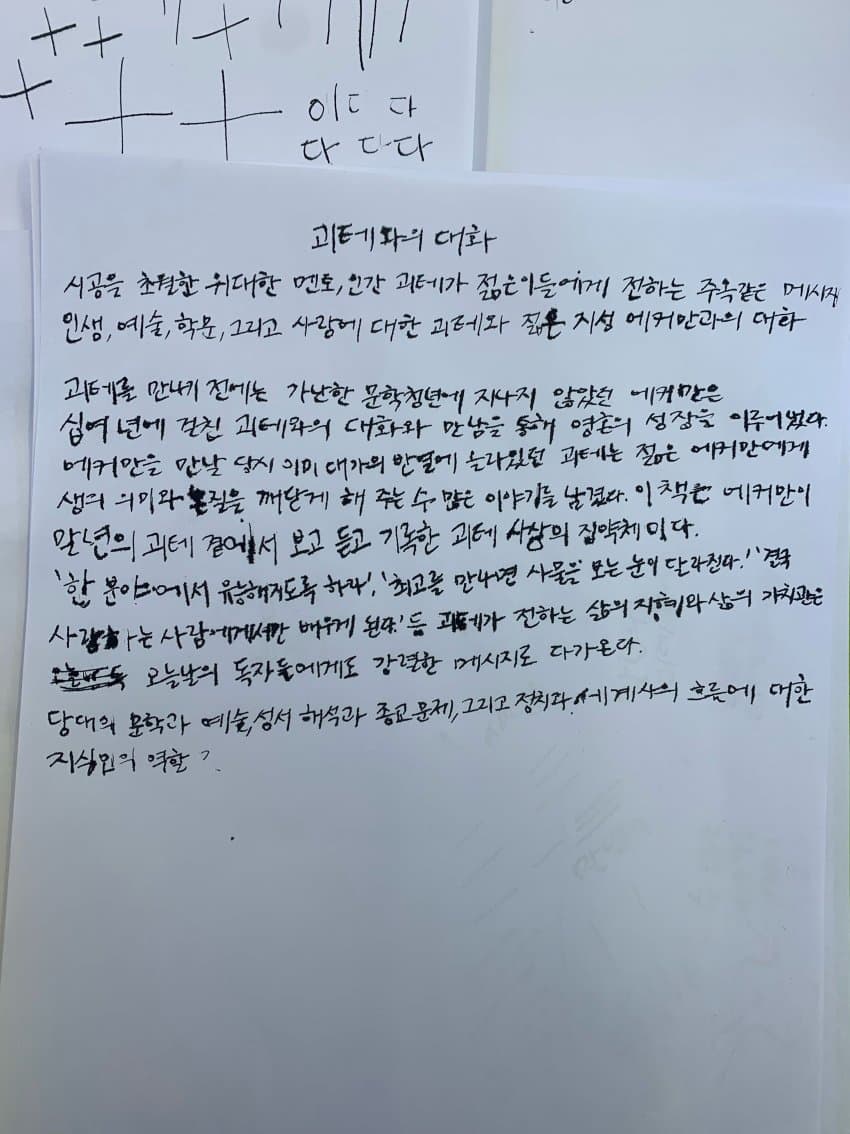 이다 다
다 다 다
괴테와의 대화
시공을 초월한 위대한 멘토, 인간 괴테가 젊은이들에게 전하는 주옥같은 메시지
인생, 예술, 학문, 그리고 사랑에 대한 괴테와 젊은 지성 에커만과의 대화
괴테를 만나기 전에는 가난한 문학청년에 지나지 않았던 에커만은
십여 년에 걸친 괴테와의 대화와 만남을 통해 영혼의 성장을 이루어 냈다.
에커만을 만날 당시 이미 대가의 반열에 올라있던 괴테는 젊은 에커만에게
생의 의미와 본질을 깨닫게 해 주는 수 많은 이야기를 남겼다. 이 책은 에커만이
말년의 괴테 곁에서 보고 듣고 기록한 괴테 사상의 집약체이다.
'한 분야에서 유능해지도록 하라', '최고를 만나면 사물을 보는 눈이 달라진다.' '결국
사랑하는 사람에게서만 배우게 된다.' 등 괴테가 전하는 삶의 지혜와 삶의 가치관은
오늘날의 독자들에게도 강렬한 메시지로 다가온다.
당대의 문학과 예술, 성서 해석과 종교 문제, 그리고 정치과 세계사의 흐름에 대한
지식인의 역할 ?